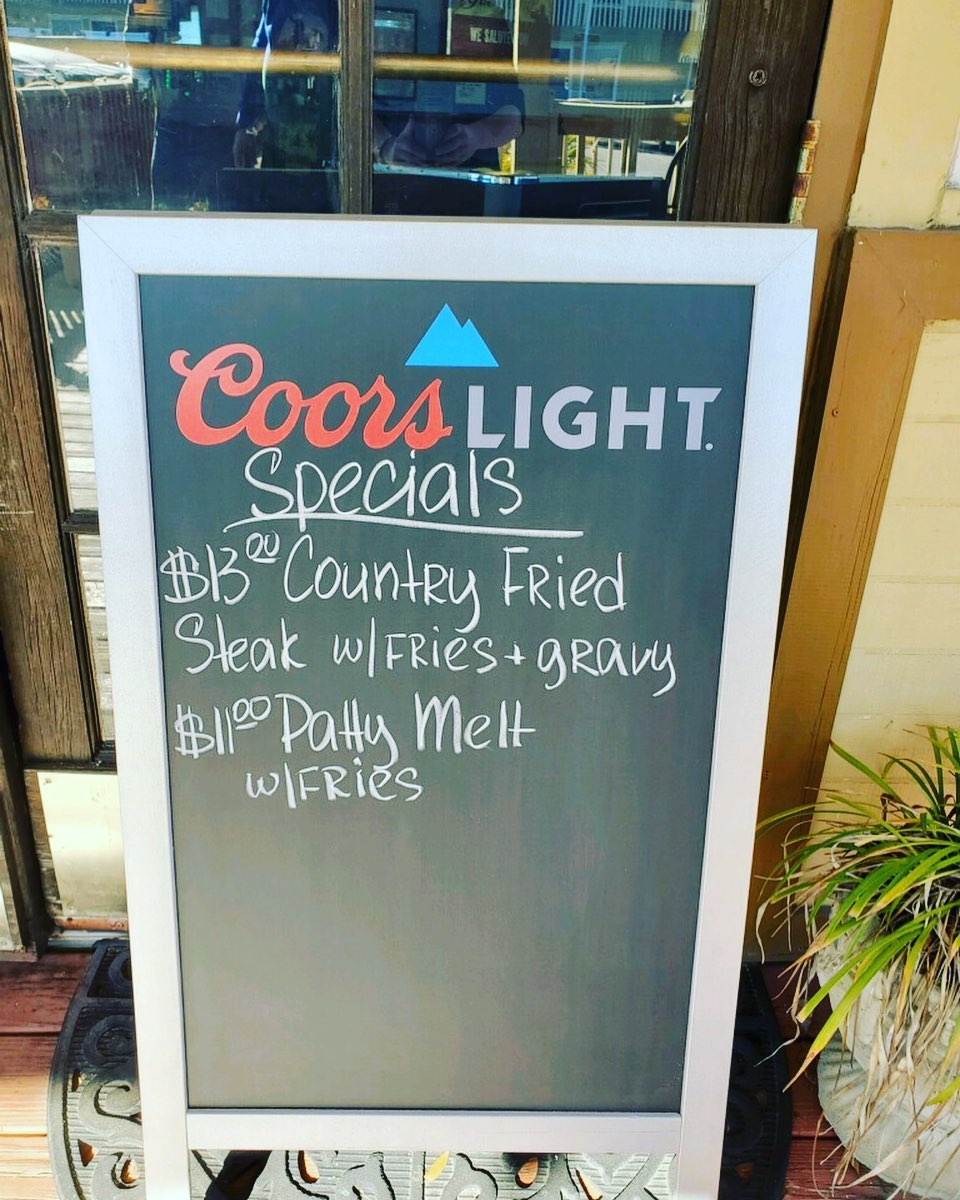 WE SALU
Coors LIGHT.
Specials
$13.00 Country Fried
Steak w/FRIES + gravy
$11.00 Patty Melt
w/FRIES